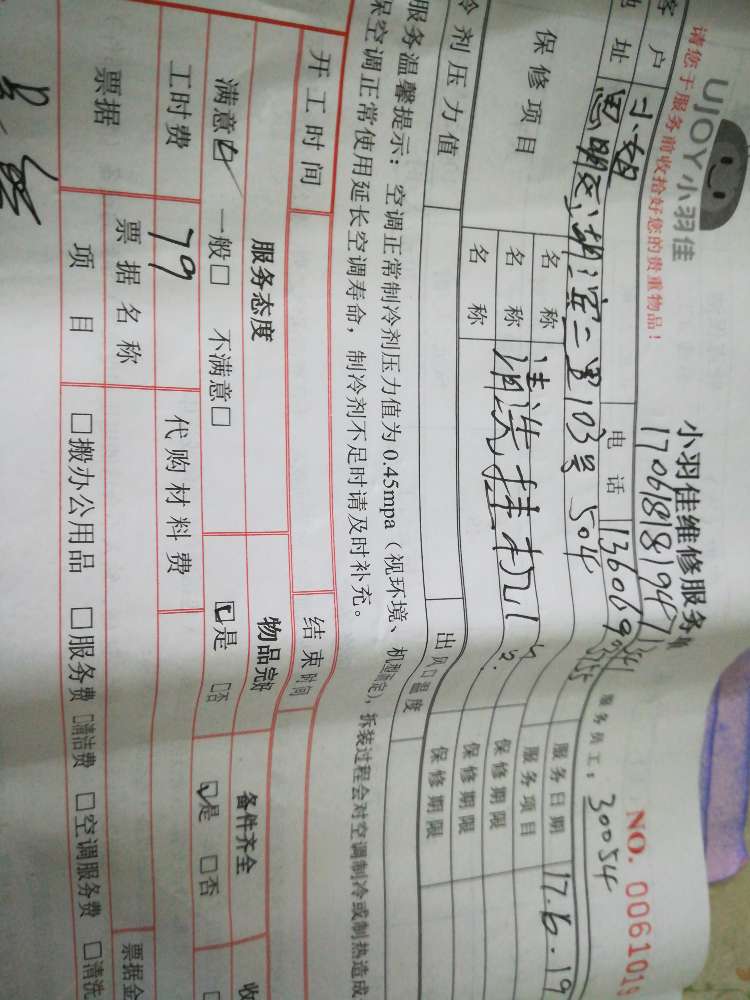 UJOY小羽佳
小羽佳维修服务
NO. 0061019
请您于服务前收拾好您的贵重物品！
17061818194
服务员工：30054
客户 小姐 电话
地址 思明区湖滨二里103号504 服务日期 17.6.19
保修项目 名称 服务项目
名称 清洗挂机 保修期限
名称 保修期限
冷剂压力值 出风口温度 保修期限
服务温馨提示：空调正常制冷剂压力值为0.45mpa（视环境、机型而定），拆装过程会对空调制冷或制热造成
保空调正常使用延长空调寿命，制冷剂不足时请及时补充。
开工时间 结束时间
服务态度 物品完好 备件齐全 收
满意□ 一般□ 不满意□ □是 □否 □是 □否
工时费 79 代购材料费
票据 票据名称 票据金
项目 □搬办公用品 □服务费 □清洁费 □空调服务费 □清洗